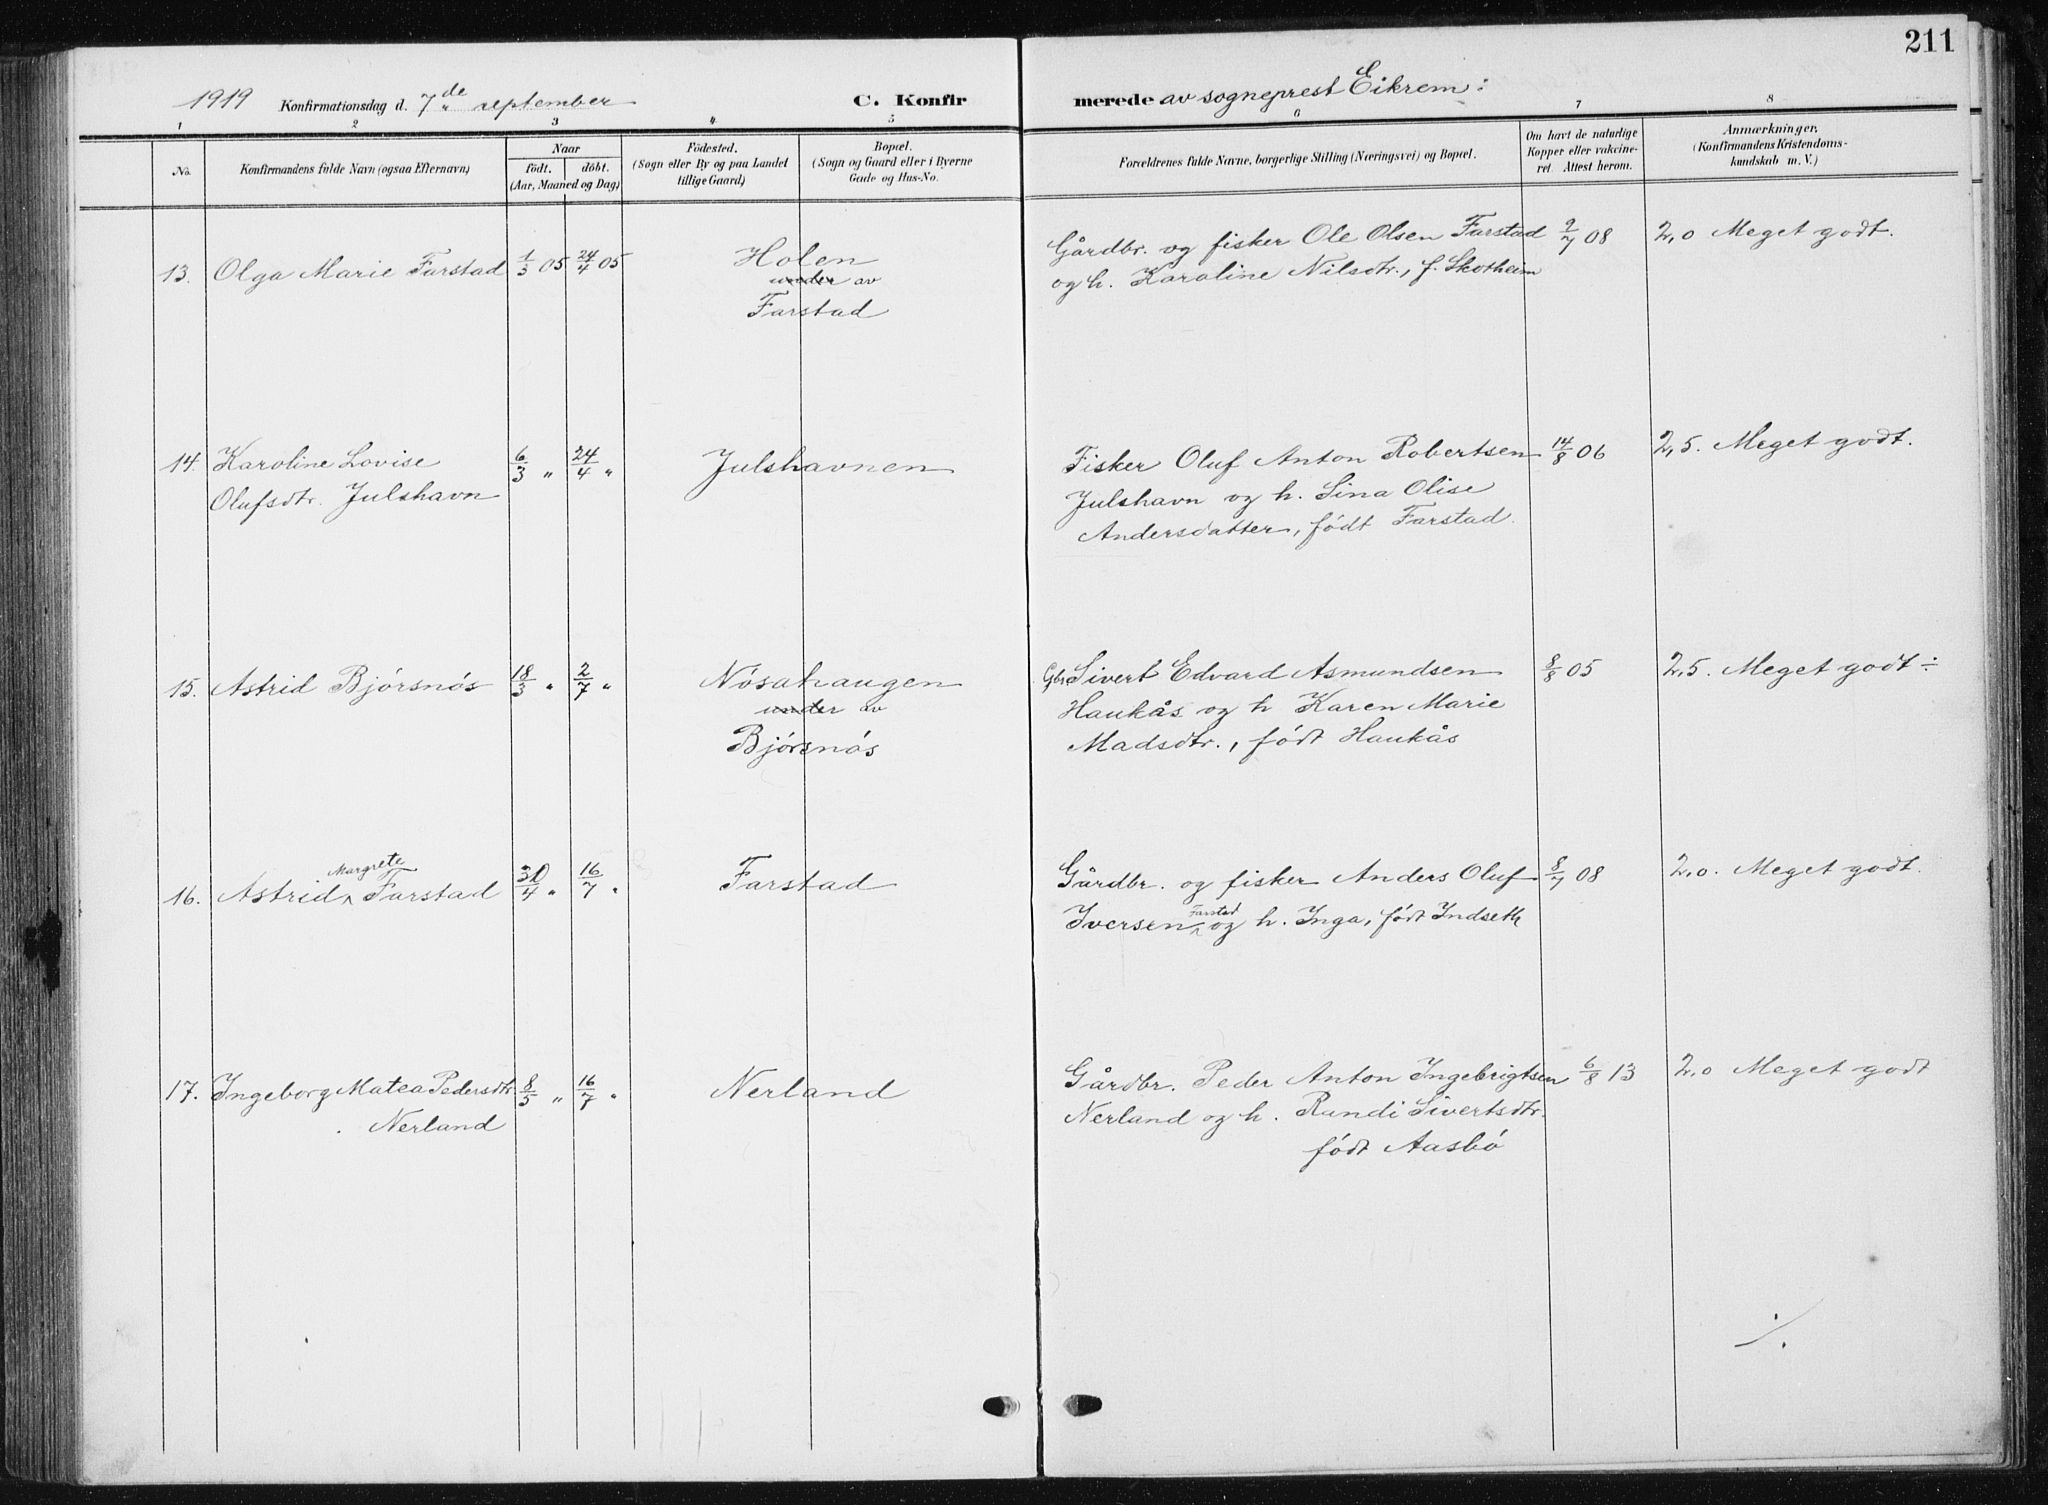 211
1919 Konfirmationsdag d. 7de september C. Konfirmerede av sogneprest Eikrem:
1 2 3 4 5 6 7 8
No. Konfirmandens fulde Navn (ogsaa Efternavn) Naar födt. döbt. (Aar, Maaned og Dag) Födested. (Sogn eller By og paa Landet tillige Gaard) Bopæl. (Sogn og Gaard eller i Byerne Gade og Hus-No. Forældrenes fulde Navne, borgerlige Stilling (Næringsvei) og Bopæl. Om havt de naturlige Kopper eller vakcineret. Attest herom. Anmærkninger. (Konfirmandens Kristendomskundskab m. V.)
13. Olga Marie Farstad 1/3 05 24/4 05 Holen Gårdbr. og fisker Ole Olsen Farstad 9/7 08 2,0 Meget godt.
under av og h. Karoline Nilsdtr., f. Skotheim
Farstad
14. Karoline Lovise 6/3 " 24/4 " Julshavnen Fisker Oluf Anton Robertsen 14/8 06 2,5. Meget godt.
Olufsdtr. Julshavn Julshavn og h. Lina Olise
Andersdatter, født Farstad.
15. Astrid Bjórsnós 18/3 " 2/7 " Nósahaugen Gbr. Sivert Edvard Asmundsen 8/8 05 2,5. Meget godt ÷
under av Haukås og h Karen Marie
Bjórsnós Madsdtr., fódt Haukås
16. Astrid Margrete Farstad 30/4 " 16/7 " Farstad Gårdbr. og fisker Anders Oluf 8/7 08 2,0. Meget godt.
Iversen Farstad og h. Inga, fódt Indseth
17. Ingeborg Matea Pedersdtr. 8/5 " 16/7 " Nerland Gårdbr. Peder Anton Ingebrigtsen 6/8 13 2,0 Meget godt
Nerland Nerland og h. Randi Sivertsdtr.
fódt Aasbó